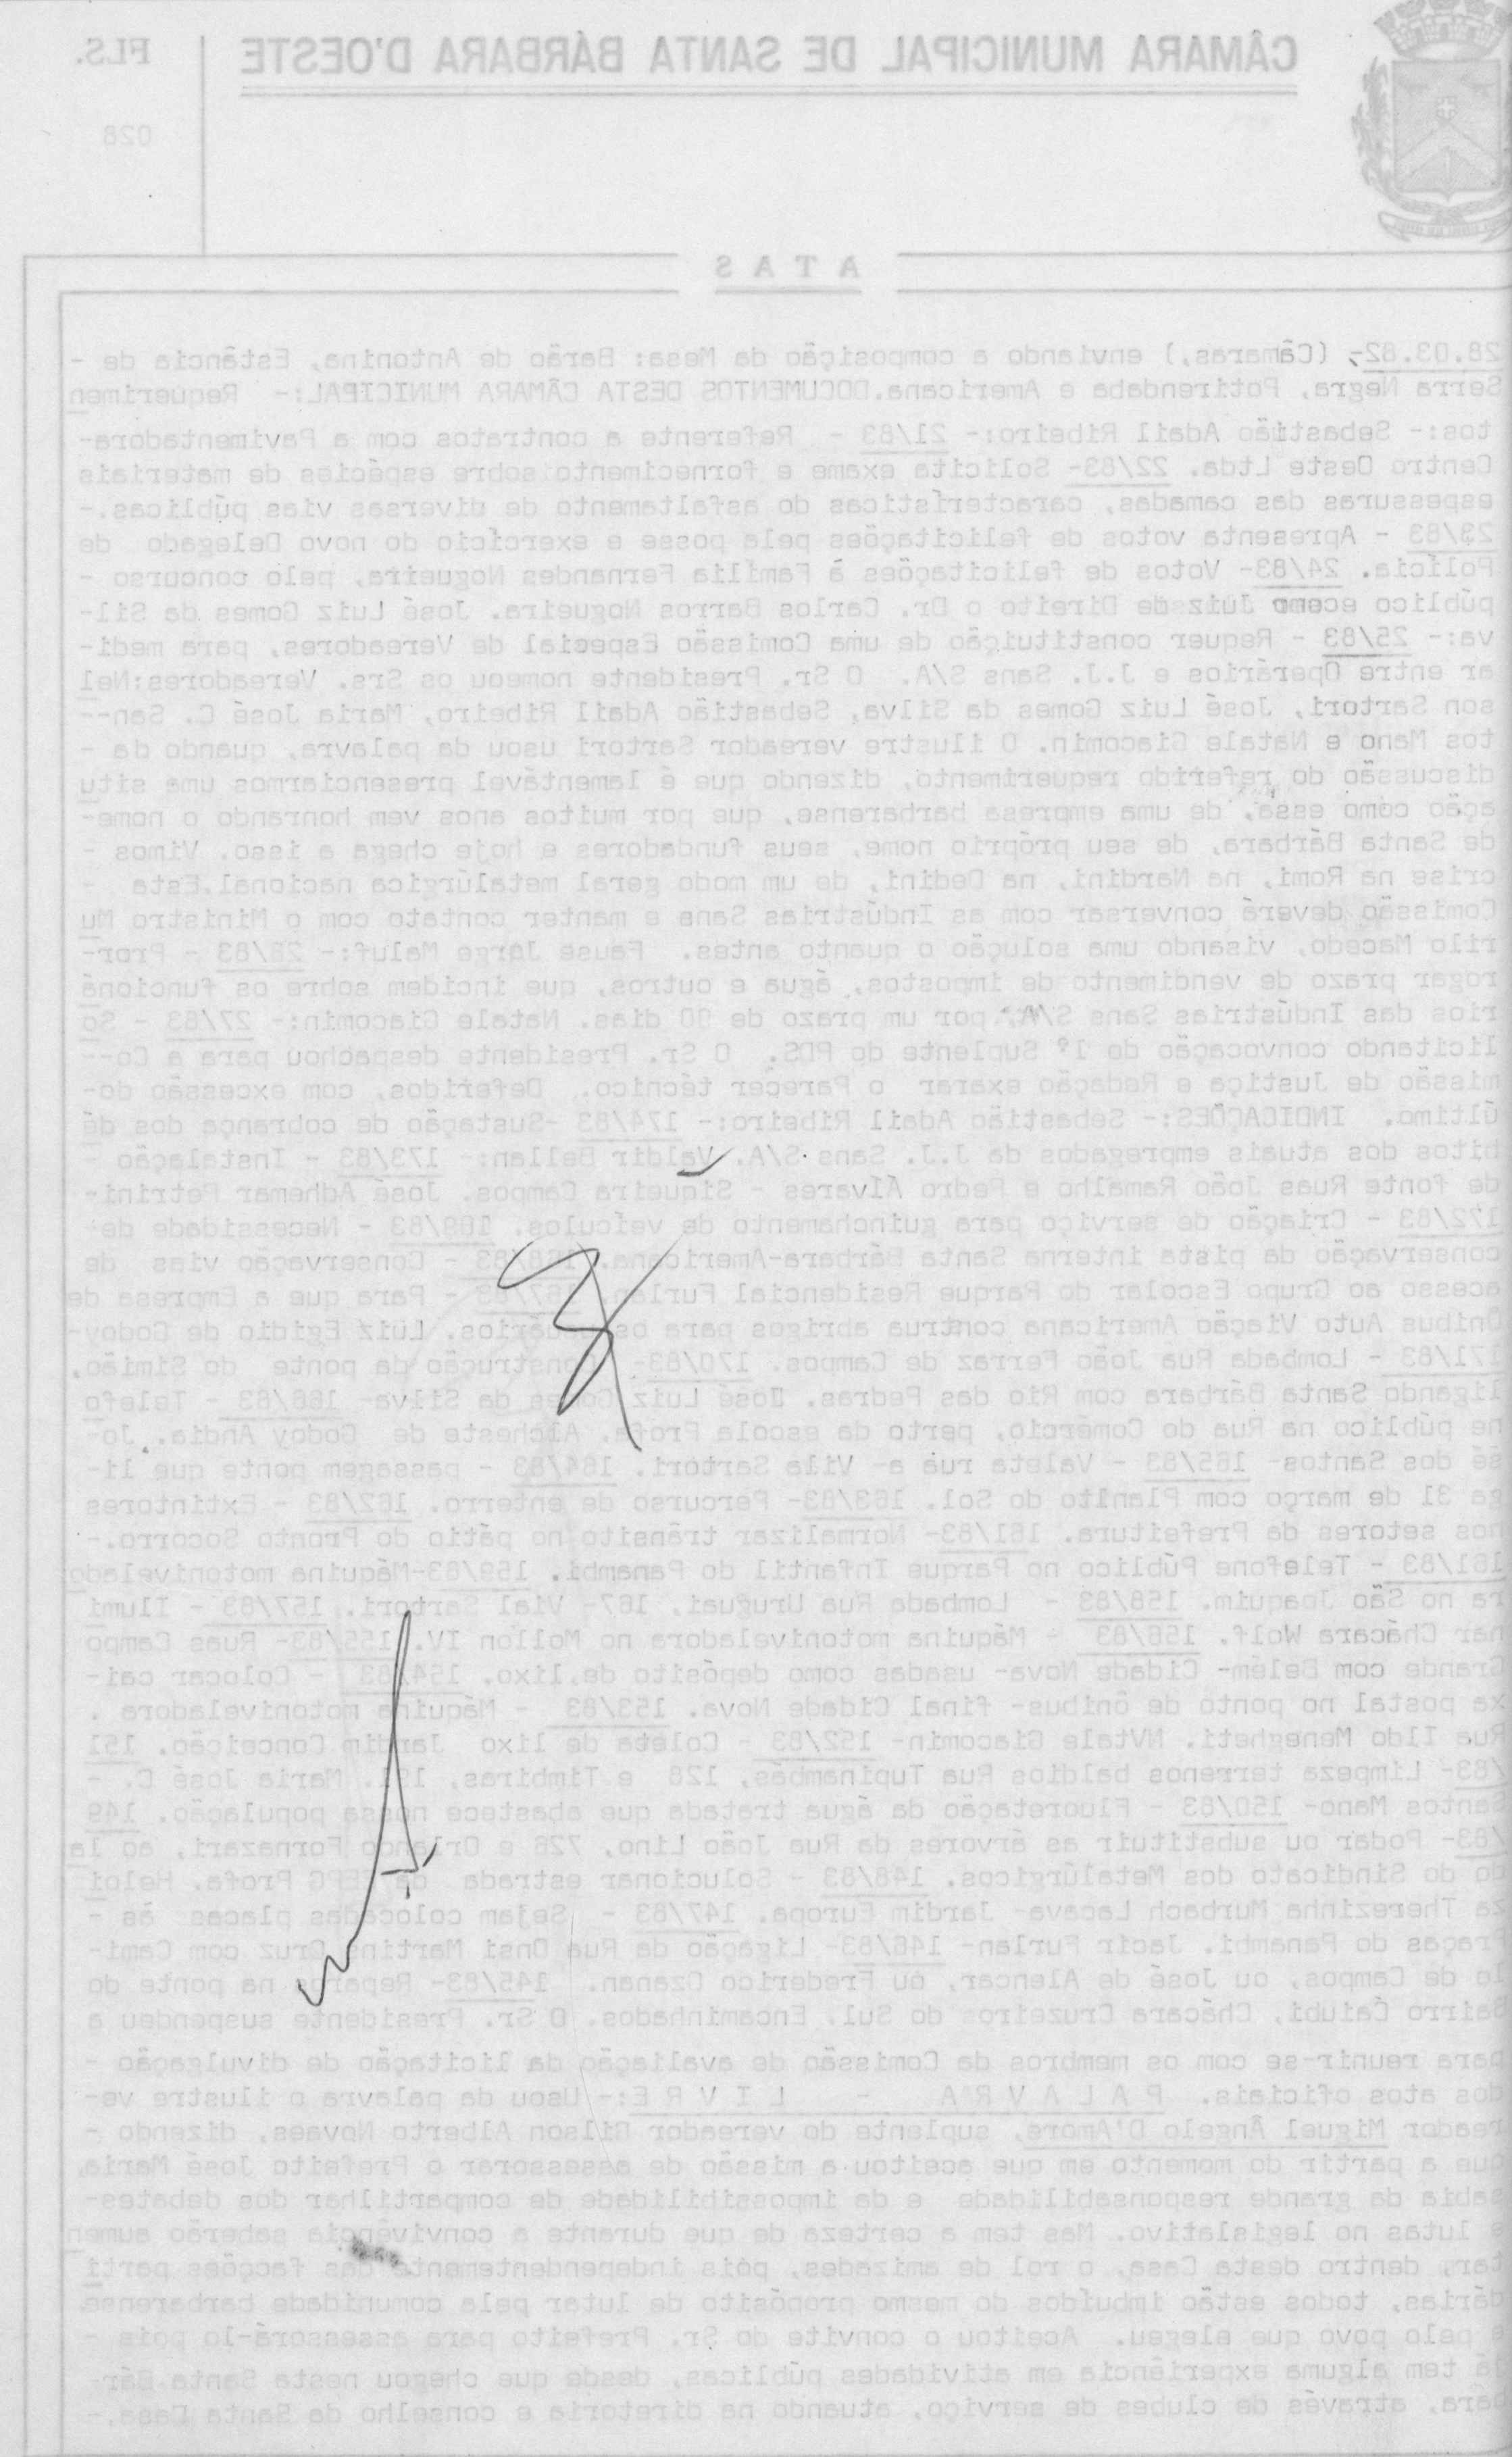 CÂMARA MUNICIPAL DE SANTA BÁRBARA D'OESTE
FLS.
028
A T A S
28.03.82- (Câmaras,) enviando a composição da Mesa: Barão de Antonina, Estância de -
Serra Negra, Potirendaba e Americana.DOCUMENTOS DESTA CÂMARA MUNICIPAL:- Requerimen
tos:- Sebastião Adail Ribeiro:- 21/83 - Referente a contratos com a Pavimentadora-
Centro Oeste Ltda. 22/83- Solicita exame e fornecimento sobre espécies de materiais
espessuras das camadas, características do asfaltamento de diversas vias públicas.-
23/83 - Apresenta votos de felicitações pela posse e exercício do novo Delegado de
Polícia. 24/83- Votos de felicitações à Família Fernandes Nogueira, pelo concurso -
público Juiz de Direito o Dr. Carlos Barros Nogueira. José Luiz Gomes da Sil-
va:- 25/83 - Requer constituição de uma Comissão Especial de Vereadores, para medi-
ar entre Operários e J.J. Sans S/A. O Sr. Presidente nomeou os Srs. Vereadores:Nel
son Sartori, José Luiz Gomes da Silva, Sebastião Adail Ribeiro, Maria José C. San--
tos Mano e Natale Giacomin. O ilustre vereador Sartori usou da palavra, quando da -
discussão do referido requerimento, dizendo que é lamentável presenciarmos uma situ
ação como essa, de uma empresa barbarense, que por muitos anos vem honrando o nome-
de Santa Bárbara, de seu próprio nome, seus fundadores e hoje chega a isso. Vimos -
crise na Romi, na Nardini, na Dedini, de um modo geral metalúrgica nacional.Esta -
Comissão deverá conversar com as Indústrias Sans e manter contato com o Ministro Mu
rilo Macedo, visando uma solução o quanto antes. Fause Jorge Maluf:- 26/83 - Pror-
rogar prazo de vendimento de impostos, água e outros, que incidem sobre os funcioná
rios das Indústrias Sans S/A, por um prazo de 90 dias. Natale Giacomin:- 27/83 - So
licitando convocação do 1º Suplente do PDS. O Sr. Presidente despachou para a Co--
missão de Justiça e Redação exarar o Parecer técnico. Deferidos, com excessão do-
último. INDICAÇÕES:- Sebastião Adail Ribeiro:- 174/83 -Sustação de cobrança dos dé
bitos dos atuais empregados da J.J. Sans S/A. Valdir Bellan:- 173/83 - Instalação -
de fonte Ruas João Ramalho e Pedro Álvares - Siqueira Campos. José Adhemar Petrini-
172/83 - Criação de serviço para guinchamento de veículos. 169/83 - Necessidade de-
conservação da pista interna Santa Bárbara-Americana. 168/83 - Conservação vias de
acesso ao Grupo Escolar do Parque Residencial Furlan. 167/83 - Para que a Empresa de
Ônibus Auto Viação Americana construa abrigos para os usuários. Luiz Egidio de Godoy-
171/83 - Lombada Rua João Ferraz de Campos. 170/83- Construção da ponte do Simião,
ligando Santa Bárbara com Rio das Pedras. José Luiz Gomes da Silva- 166/83 - Telefo
ne público na Rua do Comércio, perto da escola Profa. Alcheste de Godoy Andia. Jo-
sé dos Santos- 165/83 - Valeta rua a- Vila Sartori. 164/83 - passagem ponte que li-
ga 31 de março com Planito do Sol. 163/83- Percurso de enterro. 162/83 - Extintores
nos setores da Prefeitura. 161/83- Normalizar trânsito no pátio do Pronto Socorro.-
161/83 - Telefone Público no Parque Infantil do Panambi. 159/83-Máquina motonivelado
ra no São Joaquim. 158/83 - Lombada Rua Uruguai, 167- Vial Sartori. 157/83 - Ilumi
nar Chácara Wolf. 156/83 - Máquina motoniveladora no Mollon IV. 155/83- Ruas Campo
Grande com Belém- Cidade Nova- usadas como depósito de lixo. 154/83 - Colocar cai-
xa postal no ponto de ônibus- final Cidade Nova. 153/83 - Máquina motoniveladora .
Rua Ildo Menegheti. NVtale Giacomin- 152/83 - Coleta de lixo Jardim Conceição. 151
/83- Limpeza terrenos baldios Rua Tupinambás, 128 e Timbiras, Maria José C. -
Santos Mano- 150/83 - Fluoretação da água tratada que abastece nossa população. 149
/83- Podar ou substituir as árvores da Rua João Lino, 728 e Orlando Fornazari, ao la
do do Sindicato dos Metalúrgicos. 148/83 - Solucionar estrada da EEPG Profa. Heloi
za Therezinha Murbach Lacava- Jardim Europa. 147/83 - Sejam colocadas placas às -
Praças do Panambi. Jacir Furlan- 146/83- Ligação da Rua Onsi Martins Cruz com Cami-
lo de Campos, ou José de Alencar, ou Frederico Ozanan. 145/83- Reparos na ponte do
Bairro Caiubi, Chácara Cruzeiro do Sul. Encaminhados. O Sr. Presidente suspendeu a
para reunir-se com os membros da Comissão de avaliação da licitação de divulgação -
dos atos oficiais. P A L A V R A - L I V R E:- Usou da palavra o ilustre ve-
reador Miguel Ângelo D'Amore, suplente do vereador Gilson Alberto Novaes, dizendo -
que a partir do momento em que aceitou a missão de assessorar o Prefeito José Maria,
sabia da grande responsabilidade e da impossibilidade de compartilhar dos debates-
e lutas no legislativo. Mas tem a certeza de que durante a convivência saberão aumen
tar, dentro desta Casa, o rol de amizades, pois independentemente das facções parti
dárias, todos estão imbuídos do mesmo propósito de lutar pela comunidade barbarense
e pelo povo que elegeu. Aceitou o convite do Sr. Prefeito para assessorá-lo pois -
já tem alguma experiência em atividades públicas, desde que chegou nesta Santa Bár-
bara, através de clubes de serviço, atuando na diretoria e conselho da Santa Casa,-